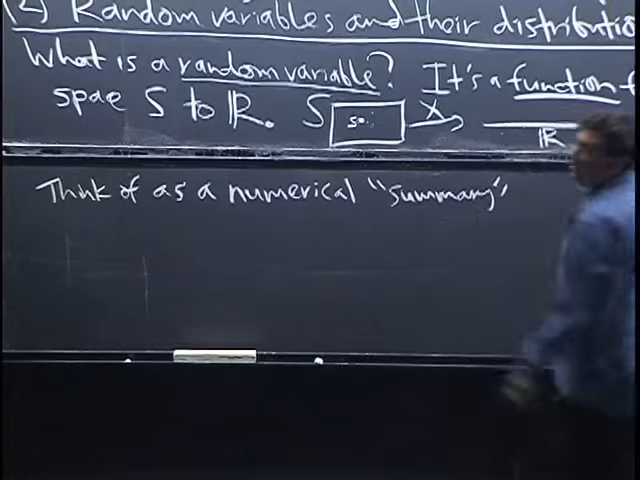 (2) Random variables and their distributio
What is a random variable? It's a function f
space S to ℝ. S s₀. X ℝ
Think of as a numerical "summary"